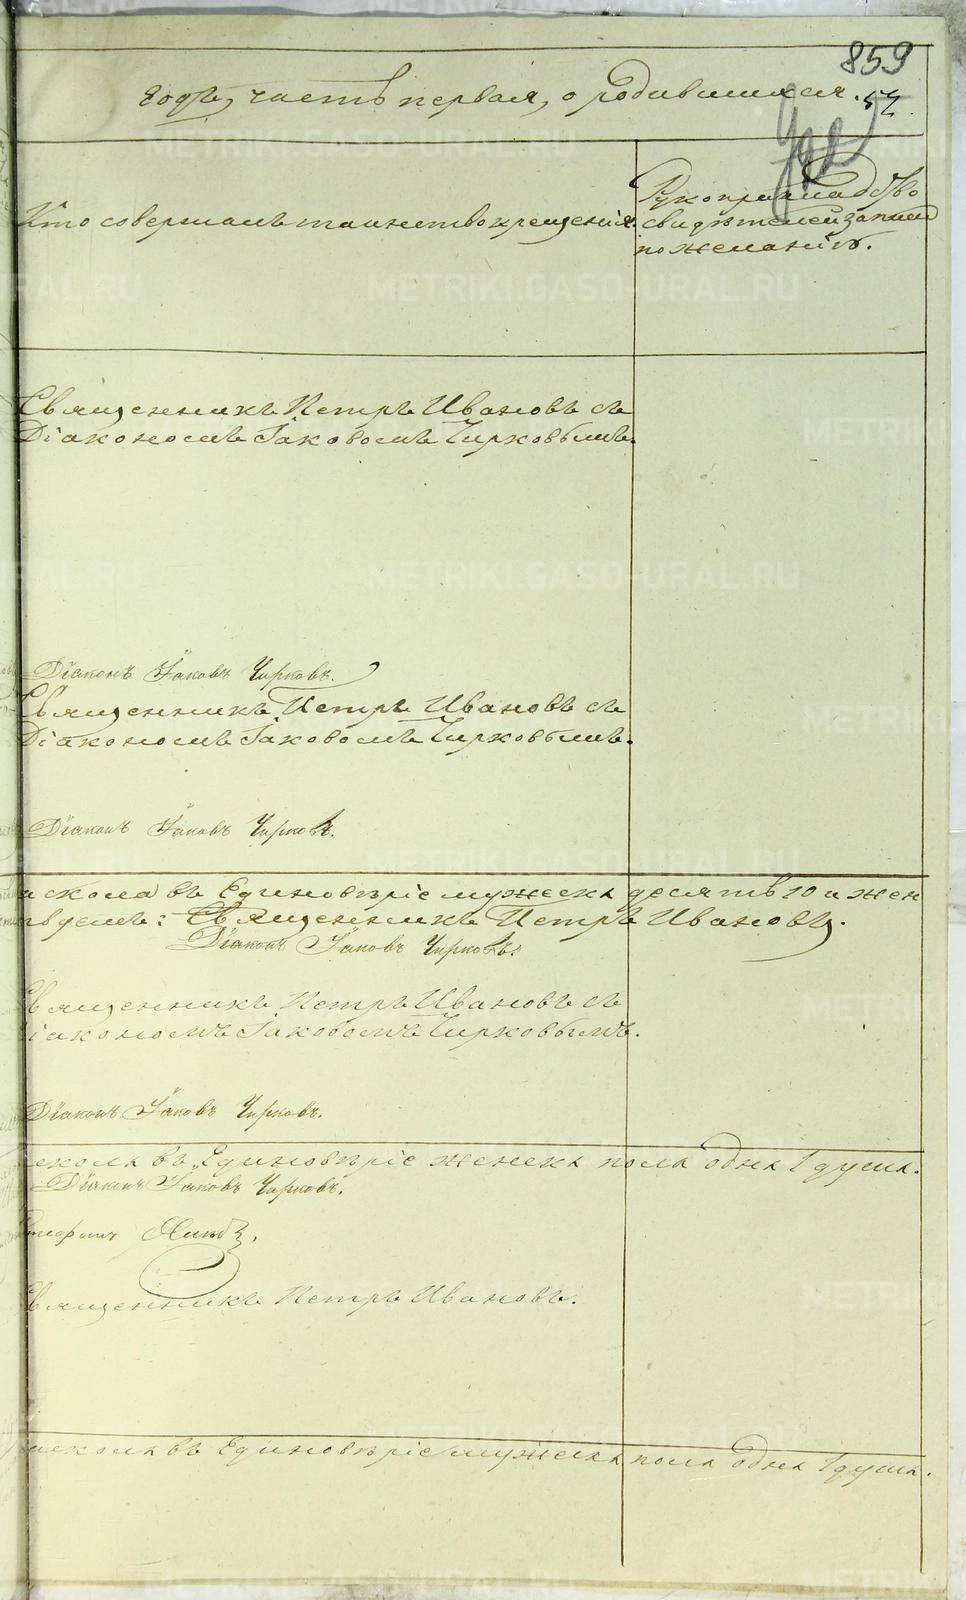 859
годѣ, часть первая, о родившихся. 57.
Кто совершалъ таинство крещенія.
Рукоприкладство
свидѣтелей записи
по желанію.
Священникъ Петръ Ивановъ съ
Діакономъ Іаковомъ Чирковымъ.
Діаконъ Іаковъ Чирковъ.
Священникъ Петръ Ивановъ съ
Діакономъ Іаковомъ Чирковымъ.
Діаконъ Іаковъ Чирковъ.
раскола въ Единовѣріе мужеска десять 10 и жен
Священникъ Петръ Ивановъ.
Діаконъ Іаковъ Чирковъ.
Священникъ Петръ Ивановъ съ
Діакономъ Іаковомъ Чирковымъ.
Діаконъ Іаковъ Чирковъ.
раскола въ Единовѣріе женска пола одна 1 душа.
Діаконъ Іаковъ Чирковъ.
Священникъ Петръ Ивановъ.
раскола въ Единовѣріе мужеска пола одна 1 душа.
METRIKI.GASO-URAL.RU